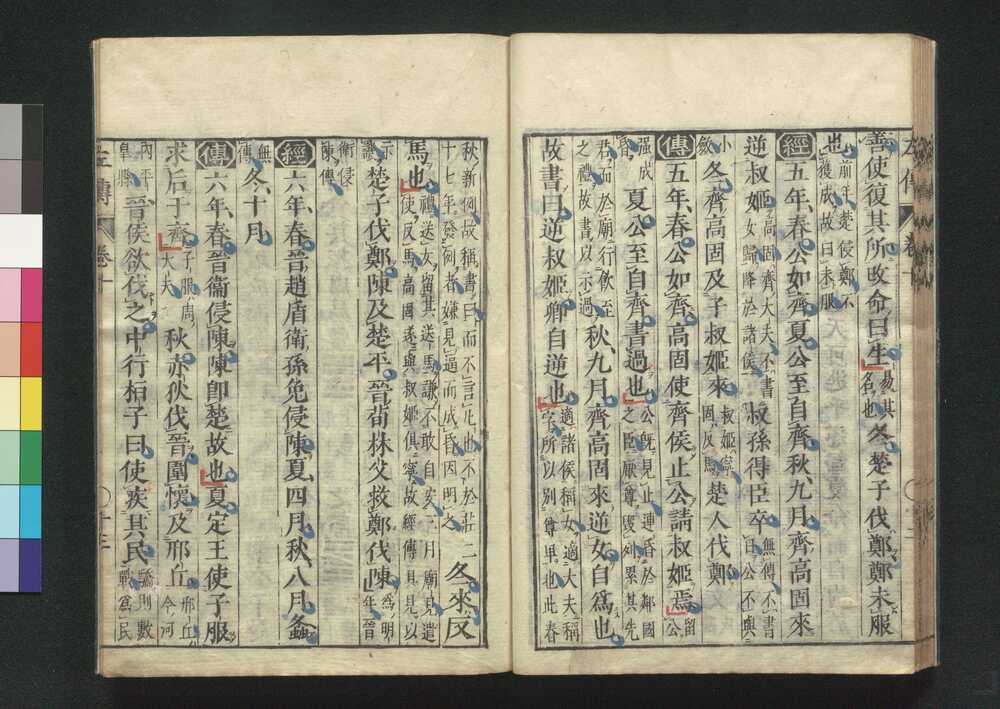 左傳 卷十
善使復其所改命曰生易其名也冬楚子伐鄭鄭未服
也前年楚侵鄭不獲成故曰未服
經五年春公如齊夏公至自齊秋九月齊高固來
逆叔姬高固齊大夫不書女歸降於諸侯叔孫得臣卒無傳不書日公不與小
斂冬齊高固及子叔姬來叔姬寧固反馬楚人伐鄭
傳五年春公如齊高固使齊侯止公請叔姬焉留公
强成昏夏公至自齊書過也公既見止連昏於鄰國之臣厭尊毀列累其先
君而於廟行飲至之禮故書以示過秋九月齊高固來逆女自爲也
故書曰逆叔姬卿自逆也適諸侯稱女適大夫稱字所以別尊卑也此春
秋新例故稱書曰而不言凡也不於莊二十七年發例者嫌見逼而成昏因明之冬來反
馬也禮送女留其送馬謙不敢自安三月廟見遣使反馬高固遂與叔姬俱寧故經傳具見以
示譏楚子伐鄭陳及楚平晉荀林父救鄭伐陳爲明年晉
衛侵陳傳
經六年春晉趙盾衛孫免侵陳夏四月秋八月螽
無傳冬十月
傳六年春晉衞侵陳陳卽楚故也夏定王使子服
求后于齊子服周大夫秋赤狄伐晉圍懷及邢丘邢丘今河
內平皐縣晉侯欲伐之中行桓子曰使疾其民驕則數戰爲民
左傳 卷十 十三